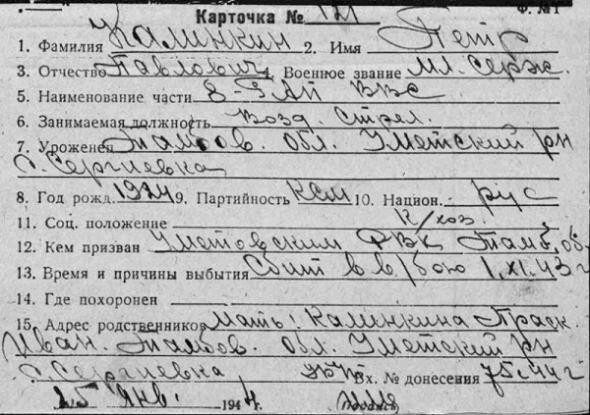 Карточка № 121 Ф. №1
1. Фамилия Калинкин 2. Имя Петр
3. Отчество Павлович 4. Военное звание мл. серж.
5. Наименование части 8-З АП ВВС
6. Занимаемая должность Возд. Стрел.
7. Уроженец Тамбов. Обл. Уметский рн
с. Сергиевка
8. Год рожд. 1924 9. Партийность КСМ 10. Национ. рус
11. Соц. положение к/хоз.
12. Кем призван Уметовским РВК Тамб. об.
13. Время и причины выбытия Сбит в в/бою 1.XI.43 г
14. Где похоронен
15. Адрес родственников Мать: Калинкина Праск.
Иван. Тамбов. Обл. Уметский рн
с. Сергиевка Вх. № донесения 75.44 г
25 Янв. 1944 г.